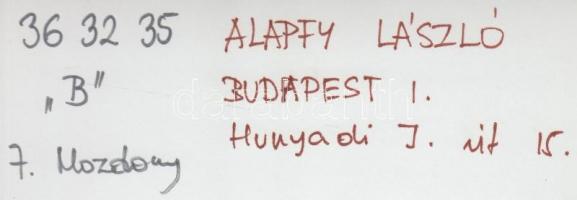 36 32 35
"B"
7. Mozdony
ALAPFY LÁSZLÓ
BUDAPEST I.
Hunyadi J. út 15.